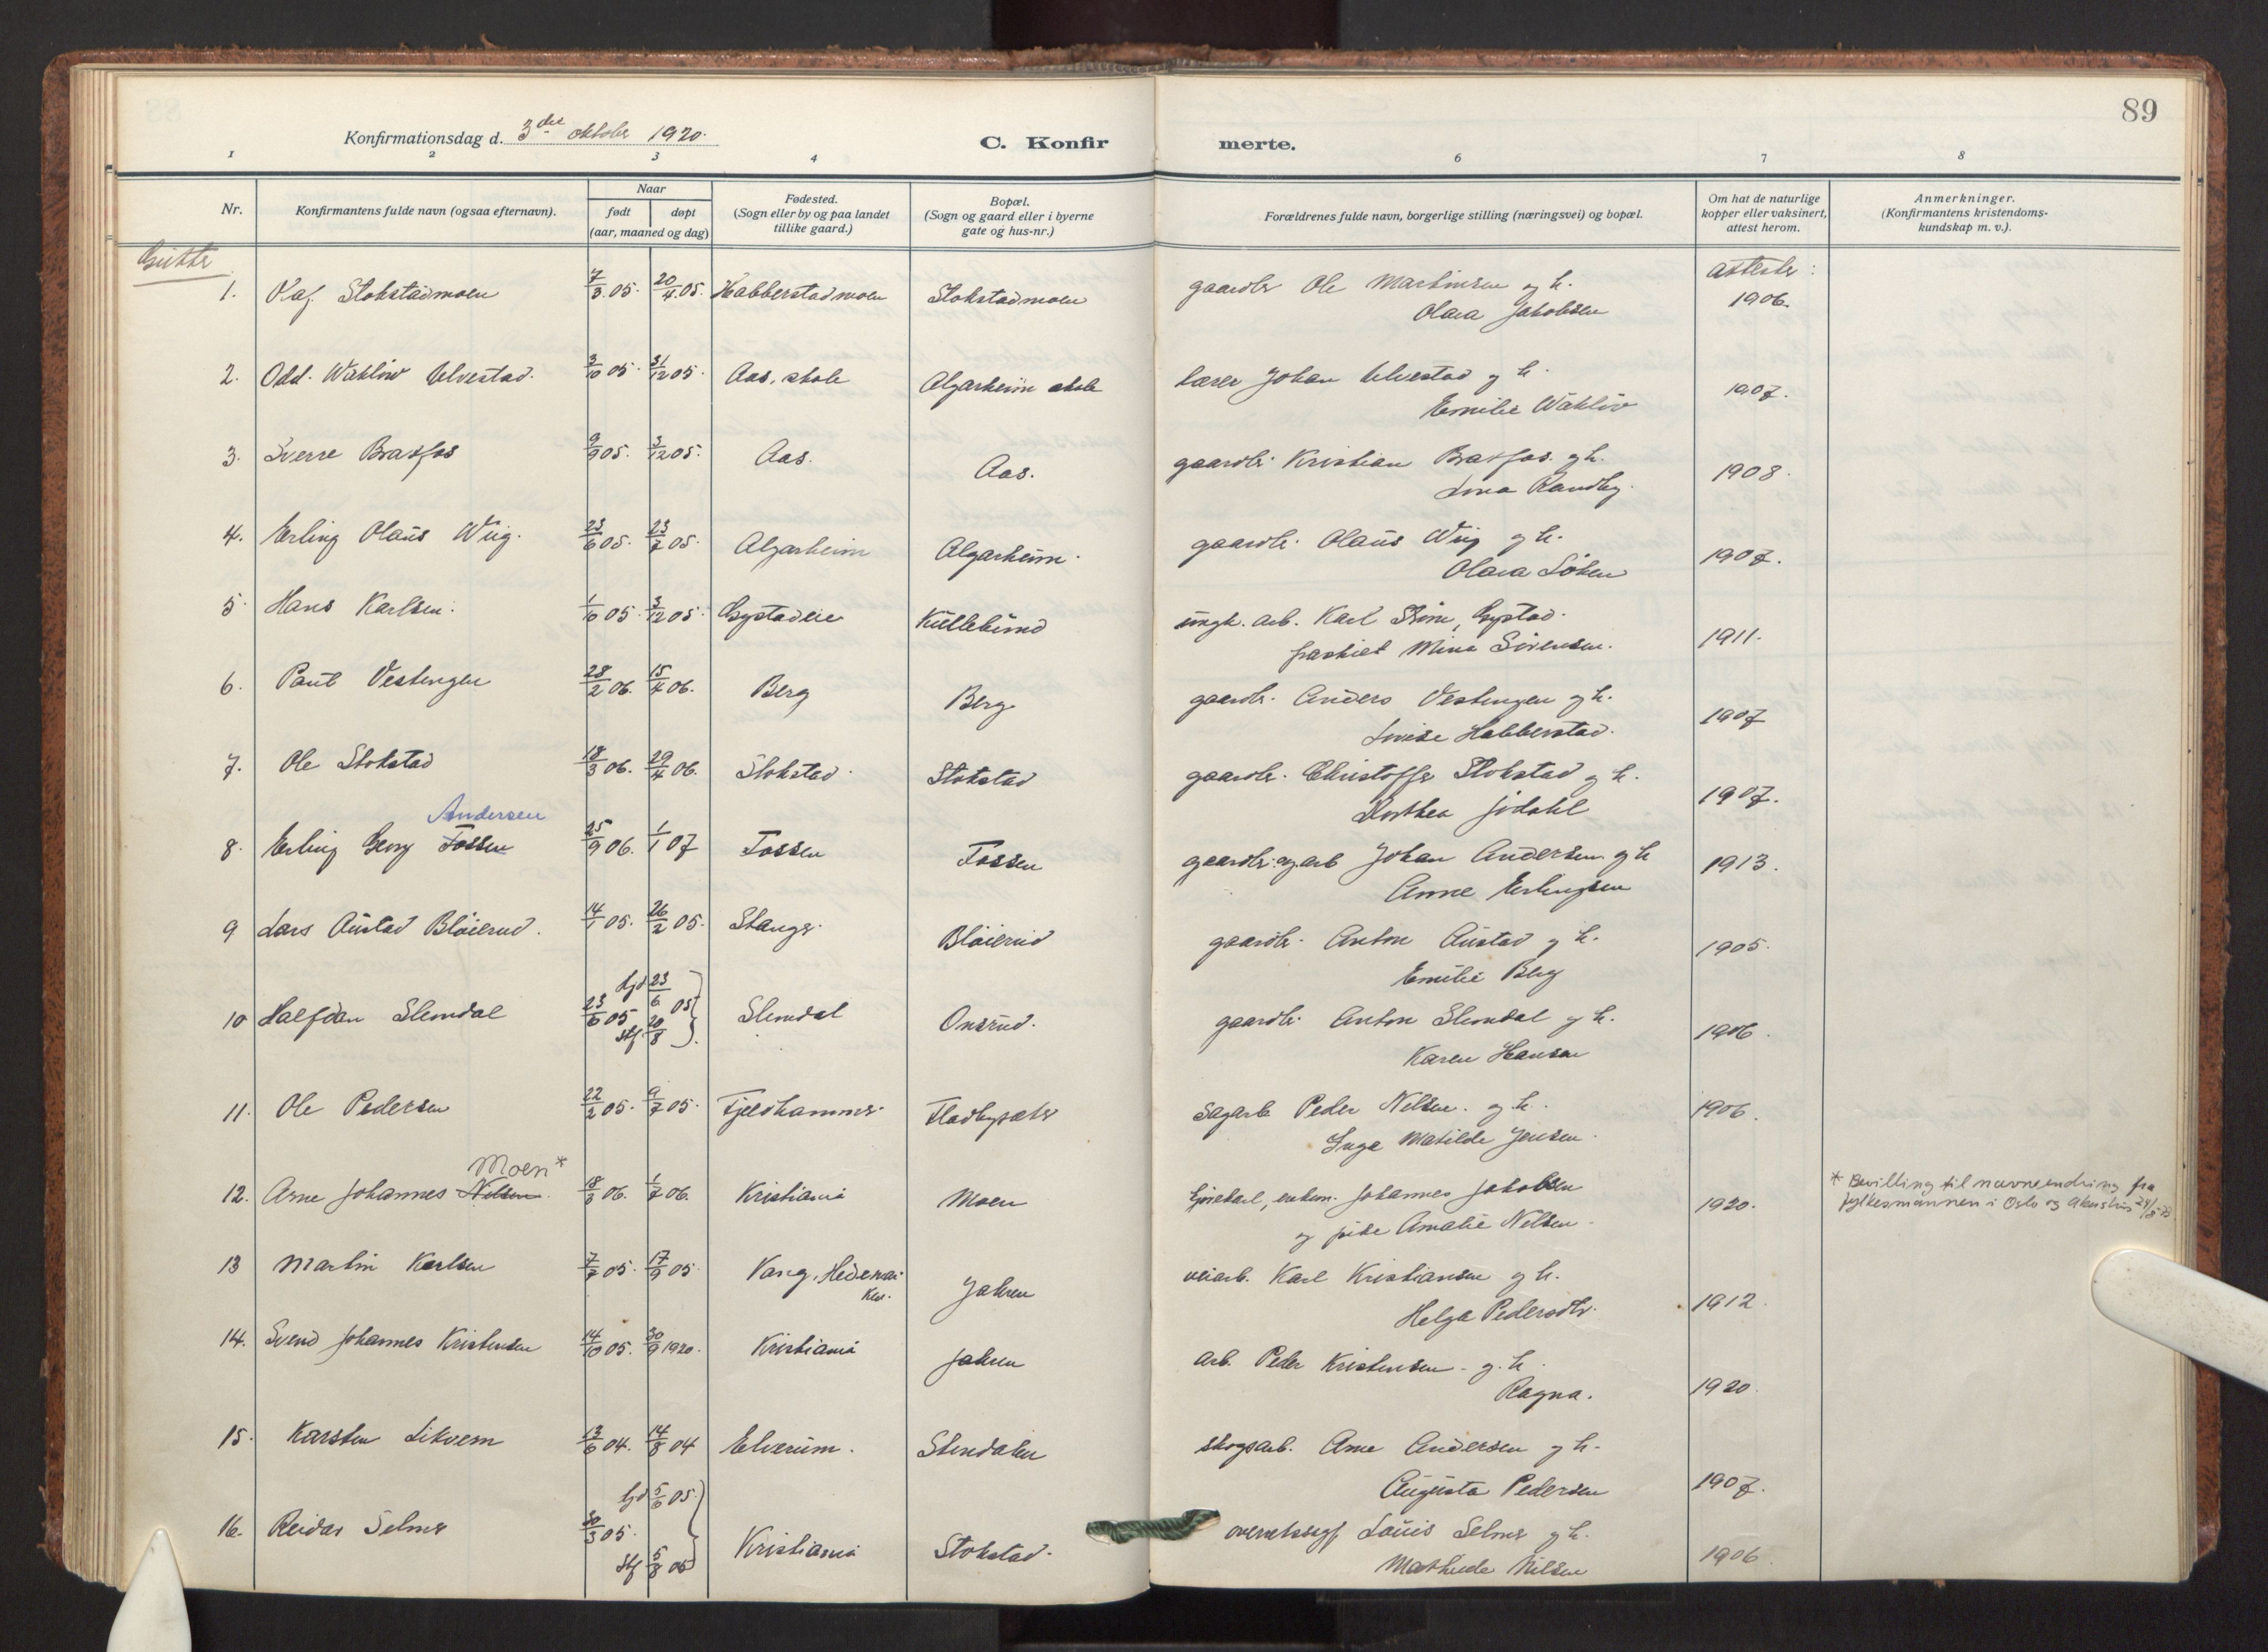 89
Konfirmationsdag d. 3die oktober 1920.
C. Konfirmerte.
1 2 3 4 6 7 8
Nr.
Konfirmantens fulde navn (ogsaa efternavn).
Naar
født døpt
(aar, maaned og dag)
Fødested.
(Sogn eller by og paa landet
tillike gaard.)
Bopæl.
(Sogn og gaard eller i byerne
gate og hus-nr.)
Forældrenes fulde navn, borgerlige stilling (næringsvei) og bopæl.
Om hat de naturlige
kopper eller vaksinert,
attest herom.
Anmerkninger.
(Konfirmantens kristendoms-
kundskap m. v.).
Gutter
attester:
1. Olaf Stokstadmoen 7/3 05. 20/4 05. Habberstadmoen Stokstadmoen gaardbr Ole Martinsen og h. 1906.
Olava Jakobsen
2. Odd. Ulvestad. 3/10 05. 31/12 05. Aas, skole Algarheim skole lærer Johan Ulvestad og h. 1907.
Emilie
3. Sverre Brasfos 9/9 05. 3/12 05. Aas. Aas. gaardbr. Kristian Brasfos. og h. 1908.
Lina Randby.
4. Erling Olaus Wiig. 23/6 05. 23/7 05. Algarheim Algarheim. gaardbr. Olaus Wiig og h. 1907.
Olava Løken
5. Hans Karlsen. 1/10 05. 3/12 05. Gystadeie Kullebund ungk. arb. Karl Gystad. 1911.
fraskilt Mina Sørensen.
6. Paul Vestengen 28/2 06. 15/4 06. Berg Berg gaardbr. Anders Vestengen og h. 1907
Lovise Habberstad.
7. Ole Stokstad 18/3 06. 29/4 06. Stokstad. Stokstad gaardbr. Christoffer Stokstad og h. 1907.
Dorthea Jødahl
Andersen
8. Erling Georg Fossen 25/9 06. 1/1 07 Fossen Fossen gaardbr. og arb Johan Andersen og h 1913.
Anne Erlingsen
9 Lars Austad Bløierud. 14/1 05. 26/2 05. Stange. Bløierud gaardbr. Anton Austad og h. 1905.
Emilie Berg
10 Halfdan Slemdal 23/6 05 hjd 23/6 05 stf. 20/8 Slemdal Onsrud. gaardbr. Anton Slemdal og h. 1906.
Karen Hansen
11. Ole Pedersen 22/2 05. 9/7 05. Fjeldhammer. Fladbysæter Sagarb Peder Nilsen. og h. 1906.
Inga Matilde Jensen.
Moen*
12. Arne Johannes Nilsen. 18/3 06. 1/7 06. Kristiania Moen Gjørekarl, enkem. Johannes Jakobsen 1920.
og pike Amalie Nilsen.
* Bevilling til navneendring fra
fylkesmannen i Oslo og Akershus
13 Martin Karlsen 7/7 05. 17/9 05. Vang, Hedemar- Jahren veiarb. Karl Kristiansen og h. 1912.
ken.
Helga Pedersdtr.
14. Svend Johannes Kristensen 14/10 05. 30/9 1920. Kristiania Jahren arb. Peder Kristensen - g. h. 1920.
Ragna.
15. Karsten Likvern 13/6 04. 14/8 04 Elverum. Stendalen skogsarb. Arne Andersen og h. 1907.
Augusta Pedersen
16. Reidar Selmer 30/3 05. hjd 5/6 05. Stf 5/8 05 Kristiania Stokstad. overretssagf. Louis Selmer og h. 1906.
Mathilde Nilsen